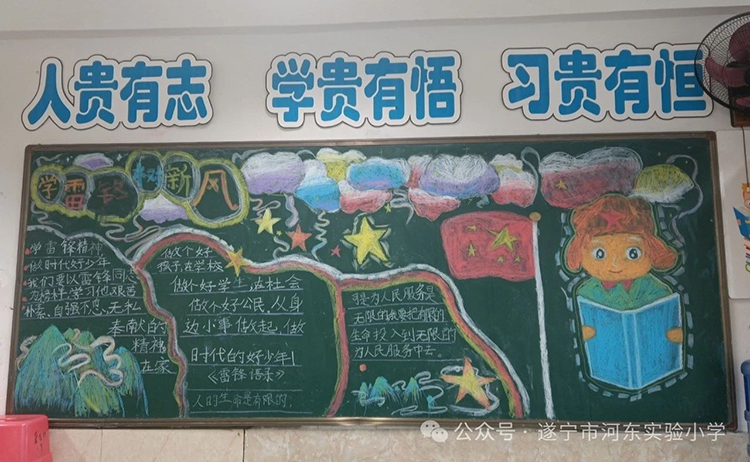 人贵有志
学贵有悟
习贵有恒
学雷锋树新风
学雷锋精神
做时代好少年
我们要以雷锋同志
为榜样,学习他艰苦
朴素、自强不息、无私
奉献的
精神
在家
做个好
孩子,在学校
做个好学生,在社会
做个好公民,从身
边小事做起,做
时代的好少年!
《雷锋语录》
人的生命是有限的,
可是为人民服务是
无限的,我要把有限的
生命投入到无限的
为人民服务中去。
公众号·遂宁市河东实验小学